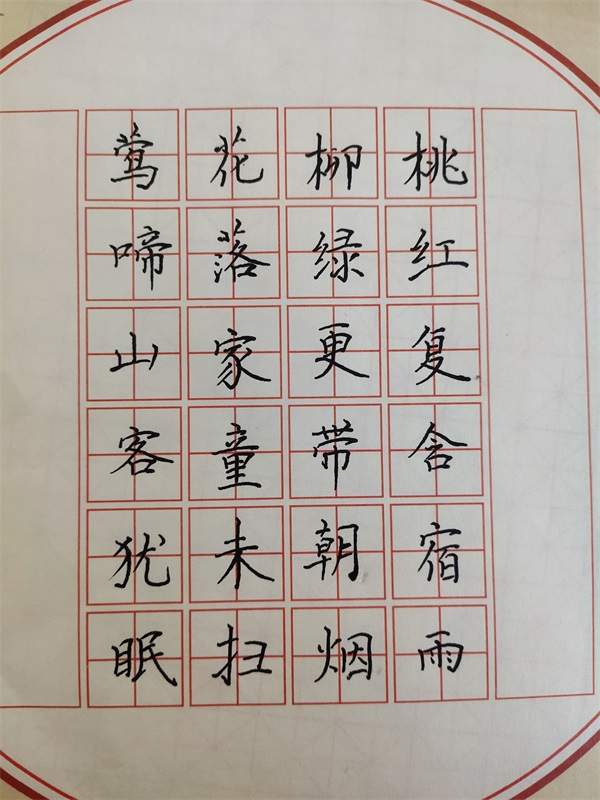 桃红复含宿雨
柳绿更带朝烟
花落家童未扫
莺啼山客犹眠